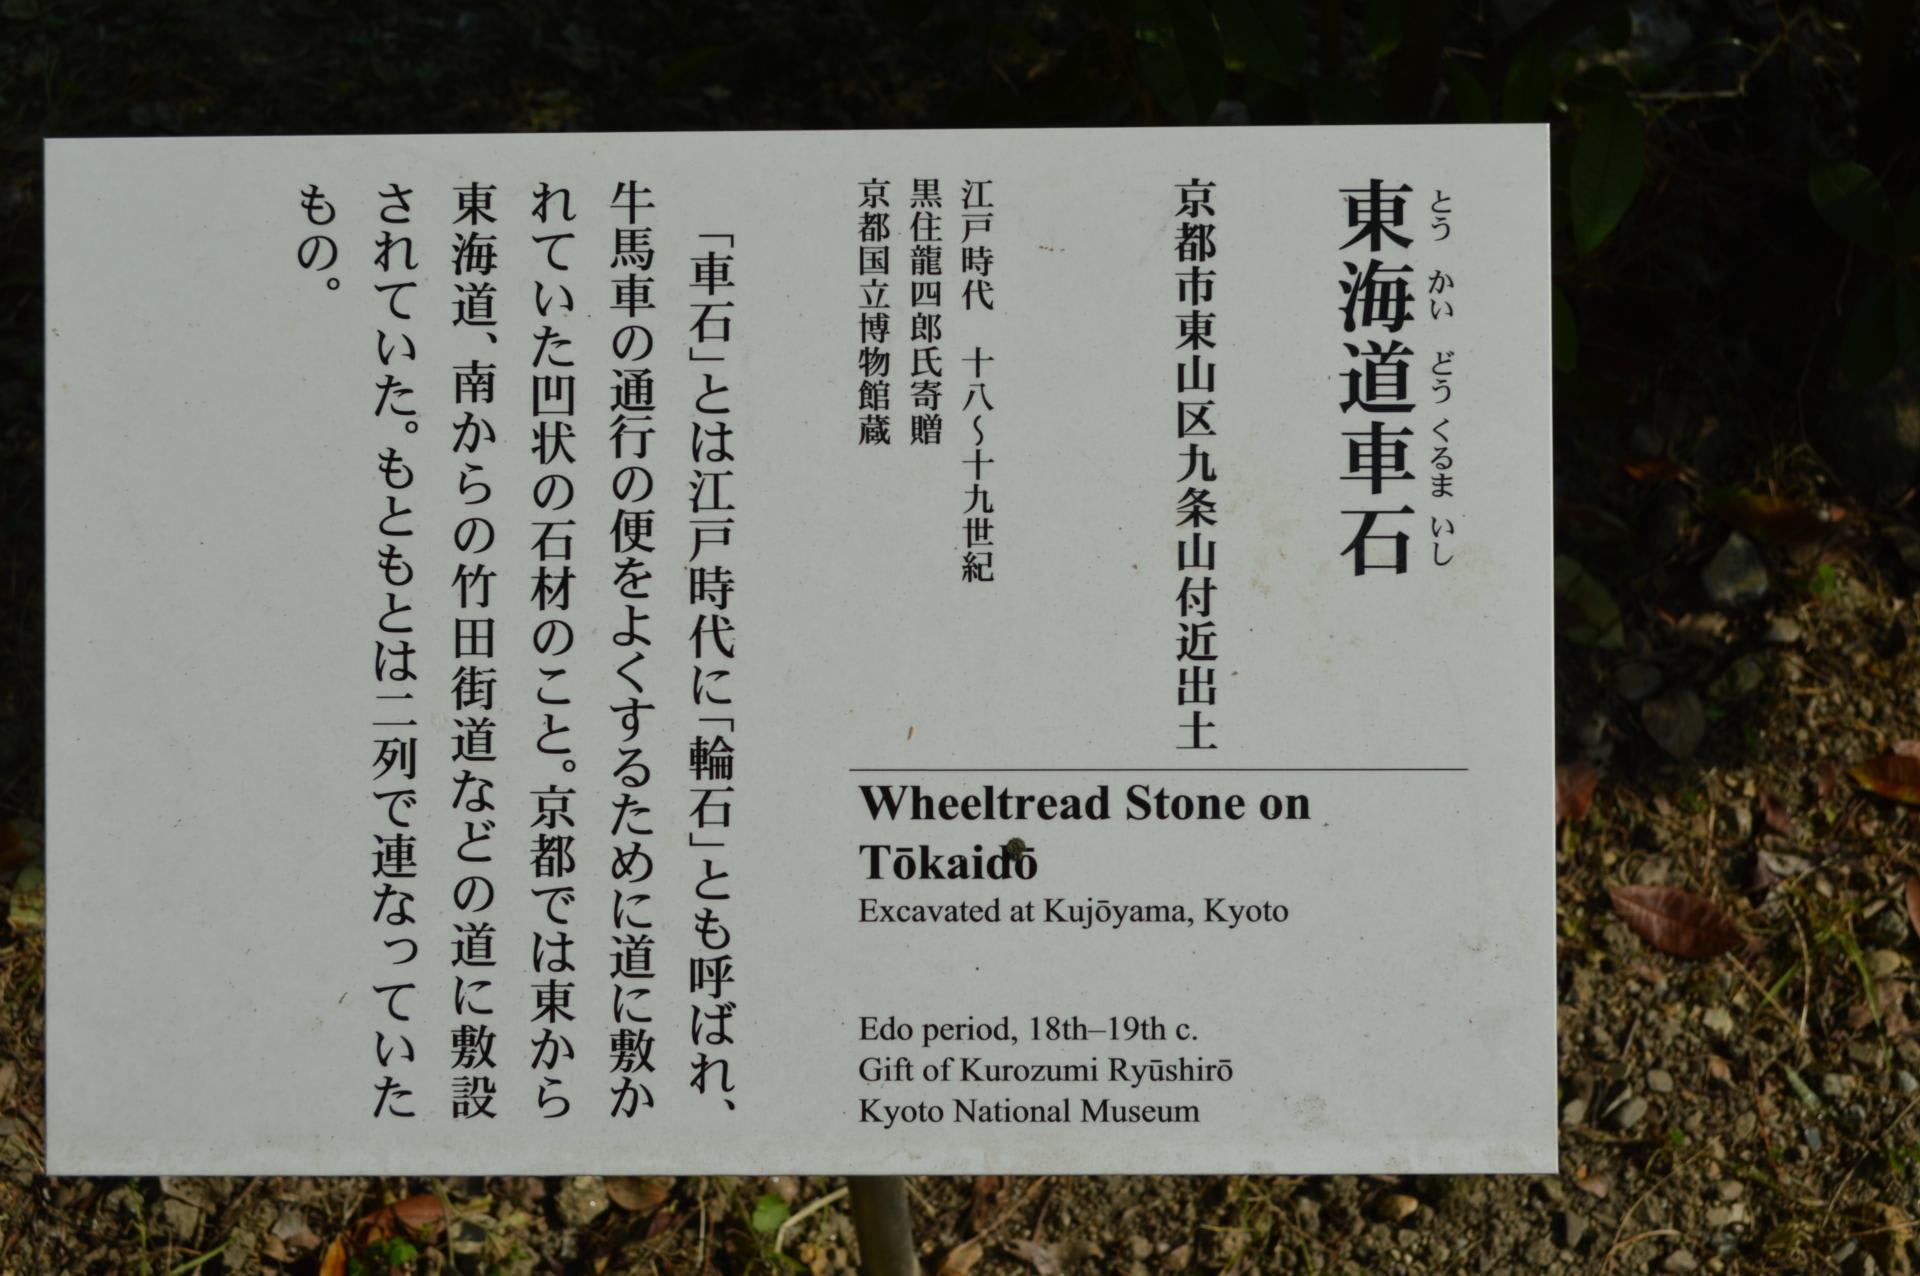 東海道車石
とう かい どう くるま いし
京都市東山区九条山付近出土
江戸時代　十八〜十九世紀
黒住龍四郎氏寄贈
京都国立博物館蔵
「車石」とは江戸時代に「輪石」とも呼ばれ、
牛馬車の通行の便をよくするために道に敷か
れていた凹状の石材のこと。京都では東から
東海道、南からの竹田街道などの道に敷設
されていた。もともとは二列で連なっていた
もの。
Wheeltread Stone on
Tōkaidō
Excavated at Kujōyama, Kyoto
Edo period, 18th–19th c.
Gift of Kurozumi Ryūshirō
Kyoto National Museum